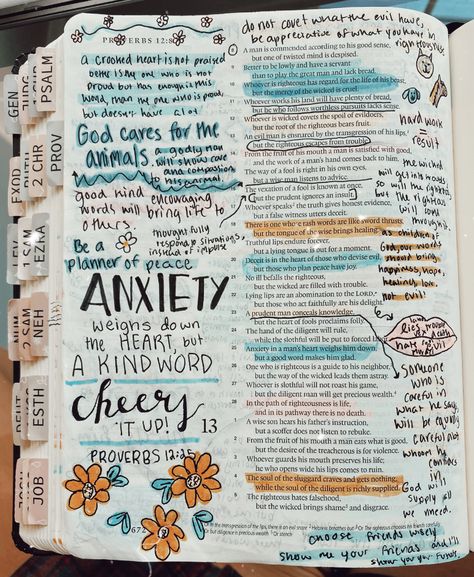 PROVERBS 12:8
a crooked heart is not praised
better is the one who is not
proud but has enough in this
world, than the one who is proud
but doesn't have alot
God cares for the
animals.
a godly man
will show care
and compassion
to his animal.
good kind encouraging
words will bring life to
others.
Be a
planner of peace
thought fully
respond to situations
instead of impulse
ANXIETY
weighs down
the HEART but
A KIND WORD
cheers
IT UP!
PROVERBS 12:25
672
GEN
PSALM
2 CHR
PROV
EZRA
NEH
ESTH
JOB
do not covet what the evil have,
be appreciative of what you have in
righteousness
A man is commended according to his good sense,
but one of twisted mind is despised.
Better to be lowly and have a servant
than to play the great man and lack bread.
Whoever is righteous has regard for the life of his beast,
but the mercy of the wicked is cruel.
Whoever works his land will have plenty of bread,
but he who follows worthless pursuits lacks sense.
Whoever is wicked covets the spoil of evildoers,
but the root of the righteous bears fruit.
An evil man is ensnared by the transgression of his lips,
but the righteous escapes from trouble.
From the fruit of his mouth a man is satisfied with good,
and the work of a man's hand comes back to him.
The way of a fool is right in his own eyes,
but a wise man listens to advice.
The vexation of a fool is known at once,
but the prudent ignores an insult.
Whoever speaks the truth gives honest evidence,
but a false witness utters deceit.
18 There is one whose rash words are like sword thrusts,
but the tongue of the wise brings healing.
19 Truthful lips endure forever,
but a lying tongue is but for a moment.
20 Deceit is in the heart of those who devise evil,
but those who plan peace have joy.
21 No ill befalls the righteous,
but the wicked are filled with trouble.
22 Lying lips are an abomination to the LORD,
but those who act faithfully are his delight.
23 A prudent man conceals knowledge,
but the heart of fools proclaims folly.
24 The hand of the diligent will rule,
while the slothful will be put to forced labor.
25 Anxiety in a man's heart weighs him down,
but a good word makes him glad.
26 One who is righteous is a guide to his neighbor,
but the way of the wicked leads them astray.
27 Whoever is slothful will not roast his game,
but the diligent man will get precious wealth.
28 In the path of righteousness is life,
and in its pathway there is no death.
13 A wise son hears his father's instruction,
but a scoffer does not listen to rebuke.
2 From the fruit of his mouth a man eats what is good,
but the desire of the treacherous is for violence.
3 Whoever guards his mouth preserves his life;
he who opens wide his lips comes to ruin.
4 The soul of the sluggard craves and gets nothing,
while the soul of the diligent is richly supplied.
5 The righteous hates falsehood,
but the wicked brings shame and disgrace.
hard work
=
result
the wicked
will get into trouble
so will the righteous
but the righteous
will come
through
as children of
God, our words
should bring
happiness, hope,
healing, love
not evil!
lies, trouble
hate
evil
someone
who is
careful in
what he says
will be equally
careful abt
whom he
God will
supply all
we need.
choose friends wisely
show me your friends and I'll
show you your future